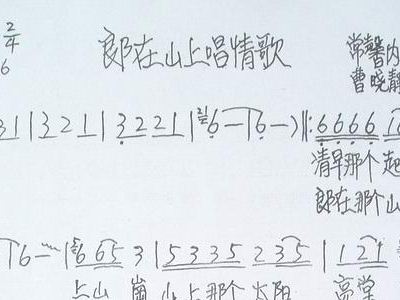 2/4
郎在山上唱情歌
6
常馨内
曹晓静
31|321|3221|6—|6—)‖:6666
清早那个起
郎在那个山
6—|6653|5335235|121
上山岗山上那个太阳高堂